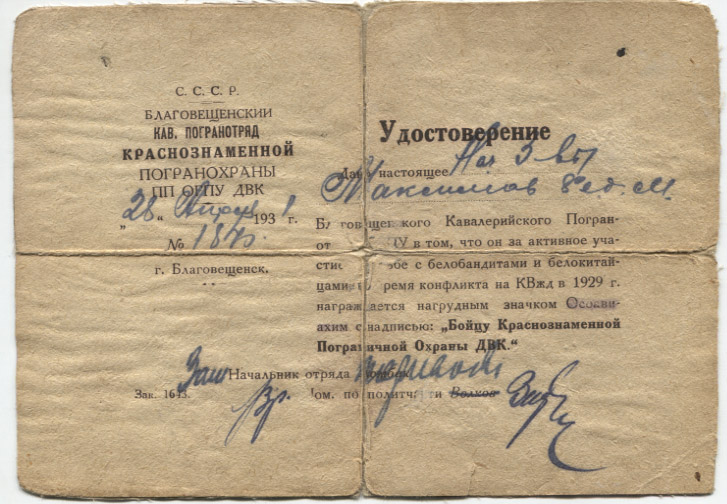 С. С. С. Р.
БЛАГОВЕЩЕНСКИЙ
КАВ. ПОГРАНОТРЯД
КРАСНОЗНАМЕННОЙ
ПОГРАНОХРАНЫ
ПП ОГПУ ДВК
„28“ Апреля 1931 г.
№
г. Благовещенск.
Удостоверение
Дано настоящее Нач 3
Максимов
Благовещенского Кавалерийского Погран-
в том, что он за активное уча-
с белобандитами и белокитай-
цами, во время конфликта на КВжд в 1929 г.
награждается нагрудным значком Осоави-
ахим с надписью: „Бойцу Краснознаменной
Пограничной Охраны ДВК.“
Зам Начальник отряда
Зак. 1643.
Вр. Пом. по политчасти Волков